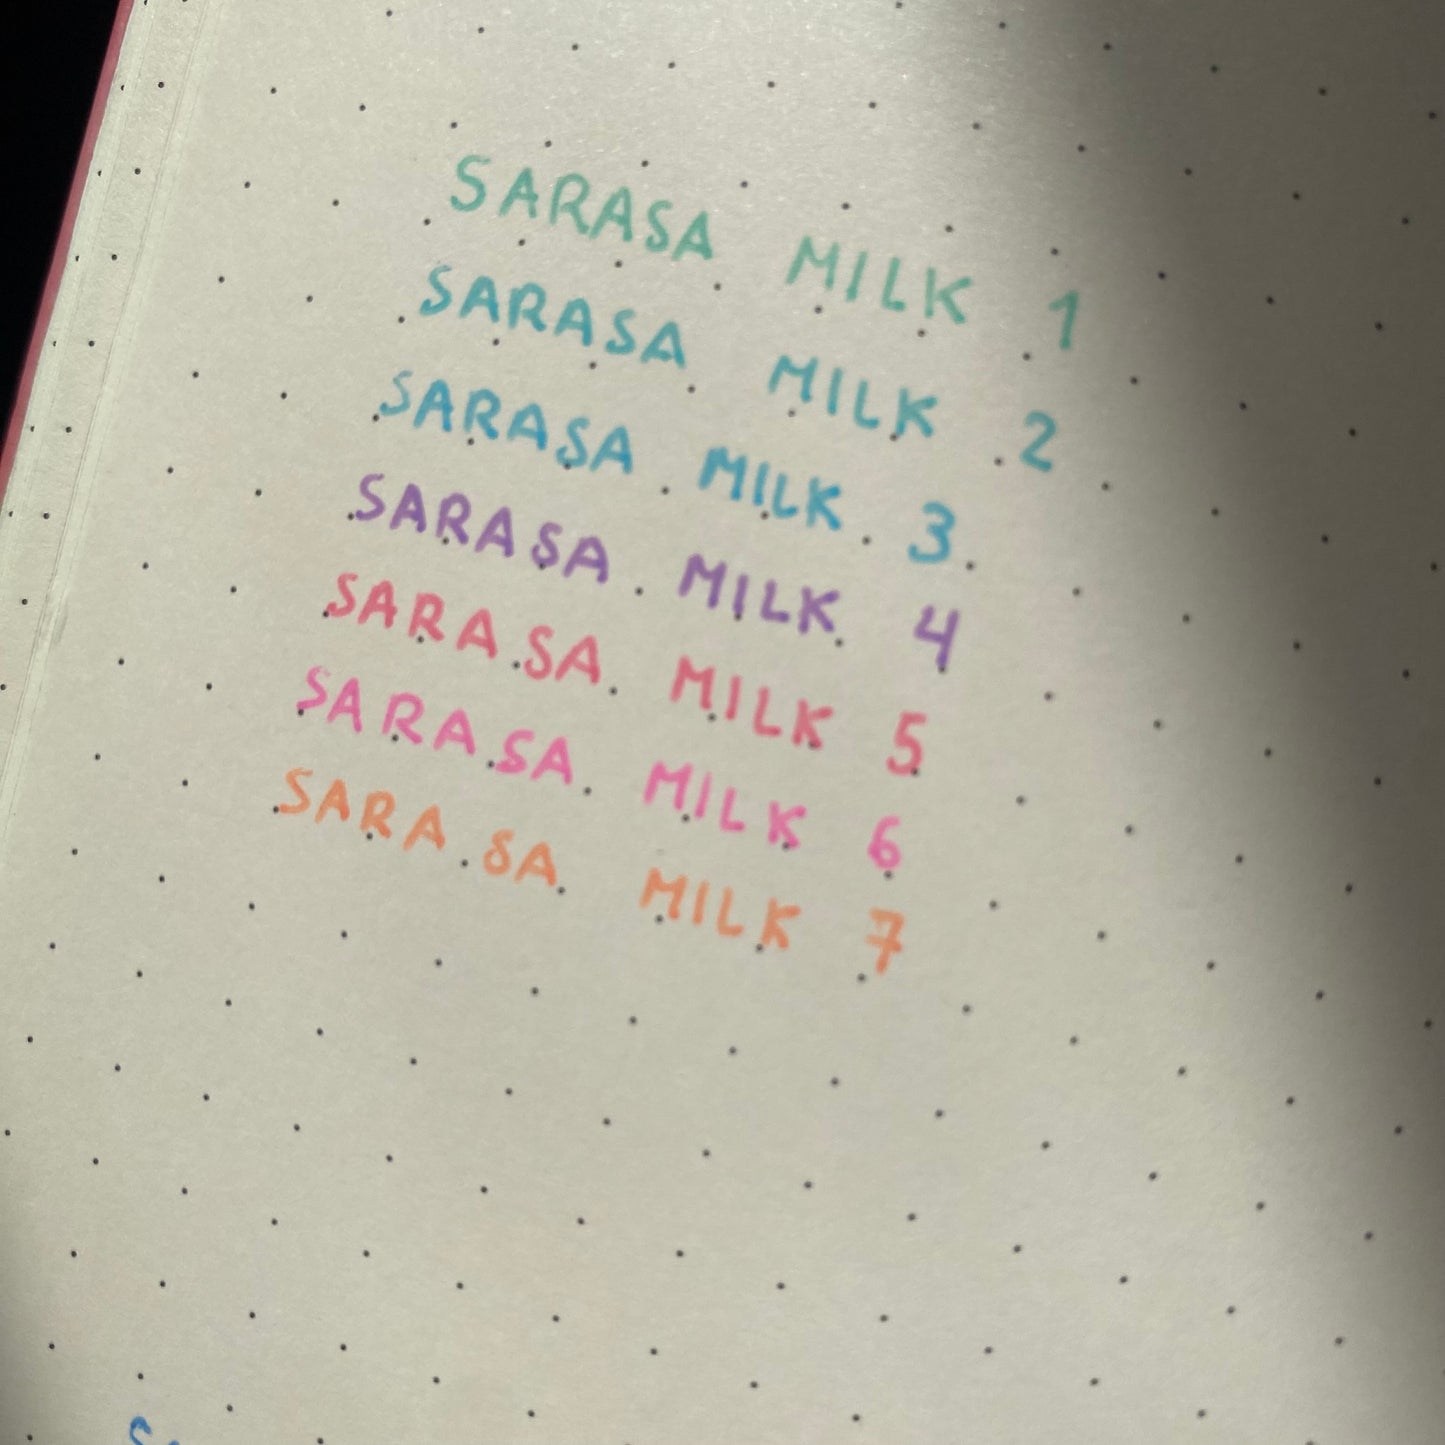 SARASA MILK 1
SARASA MILK 2
SARASA MILK 3
SARASA MILK 4
SARASA MILK 5
SARASA MILK 6
SARASA MILK 7